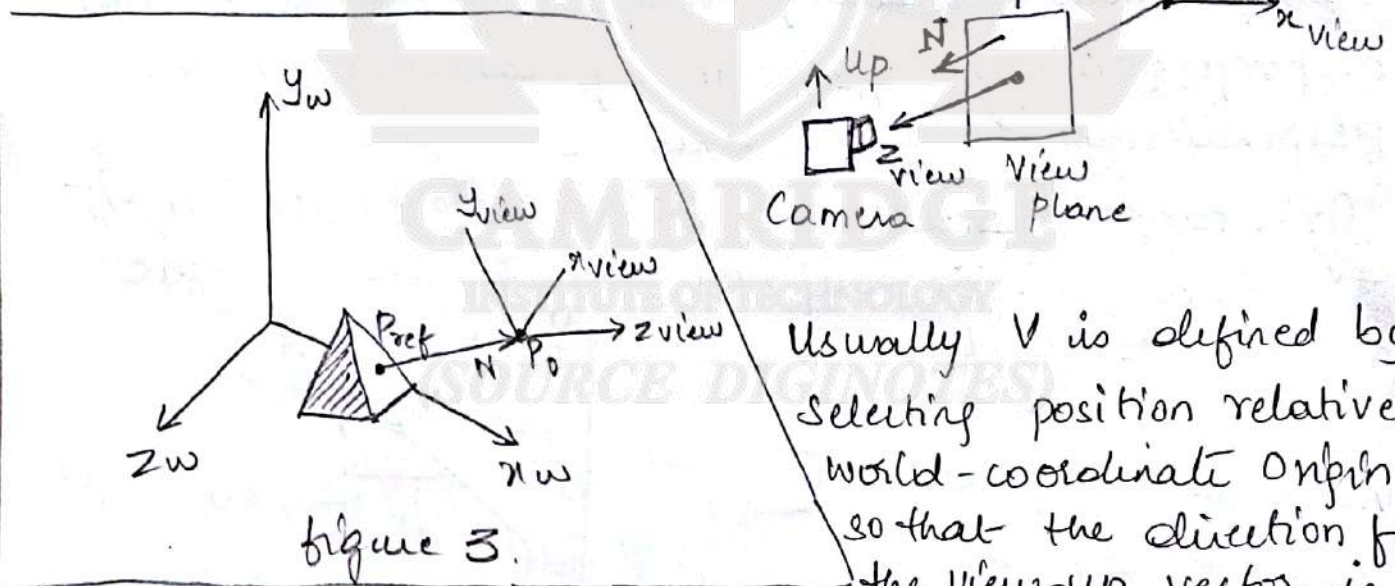 y w
y view
x view
P ref
N
P 0
z view
z w
x w
figure 3.
x view
N
Up
z view
View
plane
Camera
CAMBRIDGE
INSTITUTE OF TECHNOLOGY
(SOURCE DIGINOTES)
Usually V is defined by
selecting position relative
world-coordinate Origin
so that the direction f
the view-up vector is